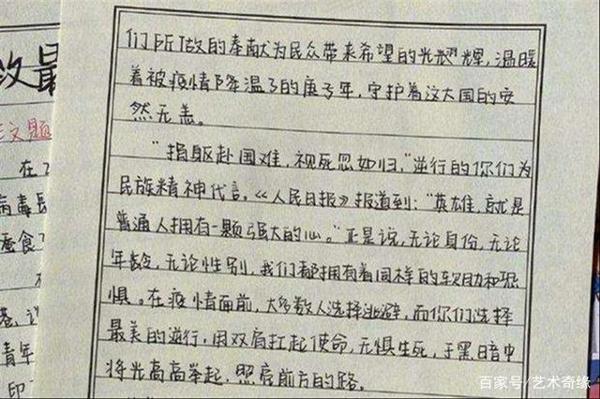 最
文题
在
病毒
蚕食了
青年
印
们所做的奉献为民众带来希望的光耀辉，温暖
着被疫情降温了的庚子年，守护着这大国的安
然无恙。
"捐躯赴国难，视死忽如归，"逆行的你们为
民族精神代言。《人民日报》报道到："英雄，就是
普通人拥有一颗强大的心。"正是说，无论身份，无论
年龄，无论性别，我们都拥有着同样的软肋和恐
惧。在疫情面前，大多数人选择逃避，而你们选择
最美的逆行，用双肩扛起使命，无惧生死，于黑暗中
将光高高举起，照亮前方的路。
百家号/艺术奇缘